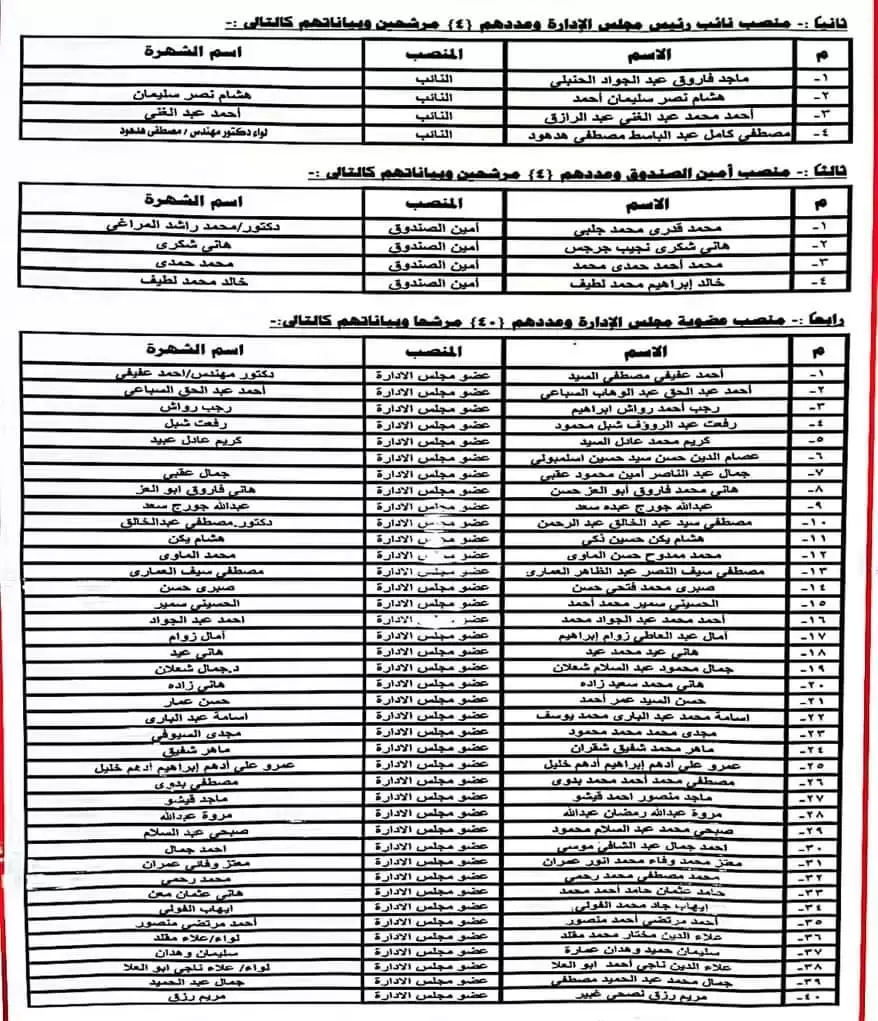 ثانيا :- منصب نائب رئيس مجلس الإدارة وعددهم {٤} مرشحين وبياناتهم كالتالى :-
م الاسم المنصب اسم الشهرة
١- ماجد فاروق عبد الجواد الحنبلي النائب
٢- هشام نصر سليمان أحمد النائب هشام نصر سليمان
٣- أحمد محمد عبد الغنى عبد الرازق النائب أحمد عبد الغني
٤- مصطفي كامل عبد الباسط مصطفي هدهود النائب لواء دكتور مهندس / مصطفى هدهود
ثالثا :- منصب أمين الصندوق وعددهم {٤} مرشحين وبياناتهم كالتالى :-
م الاسم المنصب اسم الشهرة
١- محمد قدرى محمد جلبي أمين الصندوق دكتور/محمد راشد المراغي
٢- هاني شكرى نجيب جرجس أمين الصندوق هاني شكرى
٣- محمد أحمد حمدى محمد أمين الصندوق محمد حمدى
٤- خالد إبراهيم محمد لطيف أمين الصندوق خالد محمد لطيف
رابعا :- منصب عضوية مجلس الإدارة وعددهم {٤٠} مرشحا وبياناتهم كالتالى:-
م الاسم المنصب اسم الشهرة
١- أحمد عفيفي مصطفي السيد عضو مجلس الادارة دكتور مهندس/احمد عفيفي
٢- أحمد عبد الحق عبد الوهاب السباعي عضو مجلس الادارة أحمد عبد الحق السباعي
٣- رجب أحمد رواش ابراهيم عضو مجلس الادارة رجب رواش
٤- رفعت عبد الروؤف شبل محمود عضو مجلس الادارة رفعت شبل
٥- كريم محمد عادل السيد عضو مجلس الادارة كريم عادل عبيد
٦- عصام الدين حسن سيد حسين اسلمبولي عضو مجلس الادارة
٧- جمال عبد الناصر أمين محمود عقبي عضو مجلس الادارة جمال عقبي
٨- هاني محمد فاروق أبو العز حسن عضو مجلس الادارة هاني فاروق ابو العز
٩- عبدالله جورج عبده سعد عضو مجلس الادارة عبدالله جورج سعد
١٠- مصطفي سيد عبد الخالق عبد الرحمن عضو مجلس الادارة دكتور.مصطفي عبدالخالق
١١- هشام يكن حسين ذكي عضو مجلس الادارة هشام يكن
١٢- محمد ممدوح حسن الماوى عضو مجلس الادارة محمد الماوى
١٣- مصطفي سيف النصر عبد الظاهر العمارى عضو مجلس الادارة مصطفي سيف العمارى
١٤- صبرى محمد فتحي حسن عضو مجلس الادارة صبرى حسن
١٥- الحسيني سمير محمد أحمد عضو مجلس الادارة الحسيني سمير
١٦- أحمد محمد عبد الجواد محمد عضو مجلس الادارة احمد عبد الجواد
١٧- آمال عبد العاطي زوام إبراهيم عضو مجلس الادارة آمال زوام
١٨- هاني عيد محمد عيد عضو مجلس الادارة هاني عيد
١٩- جمال محمود عبد السلام شعلان عضو مجلس الادارة د.جمال شعلان
٢٠- هاني محمد سعيد زاده عضو مجلس الادارة هاني زاده
٢١- حسن السيد عمر أحمد عضو مجلس الادارة حسن عمار
٢٢- اسامة محمد عبد البارى محمد يوسف عضو مجلس الادارة اسامة عبد البارى
٢٣- مجدى محمد محمد محمود عضو مجلس الادارة مجدى السيوفي
٢٤- ماهر محمد شفيق شقران عضو مجلس الادارة ماهر شفيق
٢٥- عمرو علي أدهم إبراهيم أدهم خليل عضو مجلس الادارة عمرو علي أدهم إبراهيم أدهم خليل
٢٦- مصطفي محمد أحمد محمد بدوى عضو مجلس الادارة مصطفي بدوى
٢٧- ماجد منصور احمد قيشو عضو مجلس الادارة ماجد قيشو
٢٨- مروة عبدالله رمضان عبدالله عضو مجلس الادارة مروة عبدالله
٢٩- صبحي محمد عبد السلام محمود عضو مجلس الادارة صبحي عبد السلام
٣٠- احمد جمال عبد الشافي موسي عضو مجلس الادارة احمد جمال
٣١- معتز محمد وفاء محمد انور عمران عضو مجلس الادارة معتز وفائي عمران
٣٢- محمد مصطفي محمد رحمي عضو مجلس الادارة محمد رحمي
٣٣- حامد عثمان حامد أحمد محمد عضو مجلس الادارة هاني عثمان معن
٣٤- إيهاب جاد محمد الفولي عضو مجلس الادارة ايهاب الفولي
٣٥- أحمد مرتضي أحمد منصور عضو مجلس الادارة أحمد مرتضي منصور
٣٦- علاء الدين مختار محمد مقلد عضو مجلس الادارة لواء/علاء مقلد
٣٧- سليمان حميد وهدان عمارة عضو مجلس الادارة سليمان وهدان
٣٨- علاء الدين ناجي أحمد ابو العلا عضو مجلس الادارة لواء/ علاء ناجي ابو العلا
٣٩- جمال محمد عبد الحميد مصطفي عضو مجلس الادارة جمال عبد الحميد
٤٠- مريم رزق نصحي غبير عضو مجلس الادارة مريم رزق